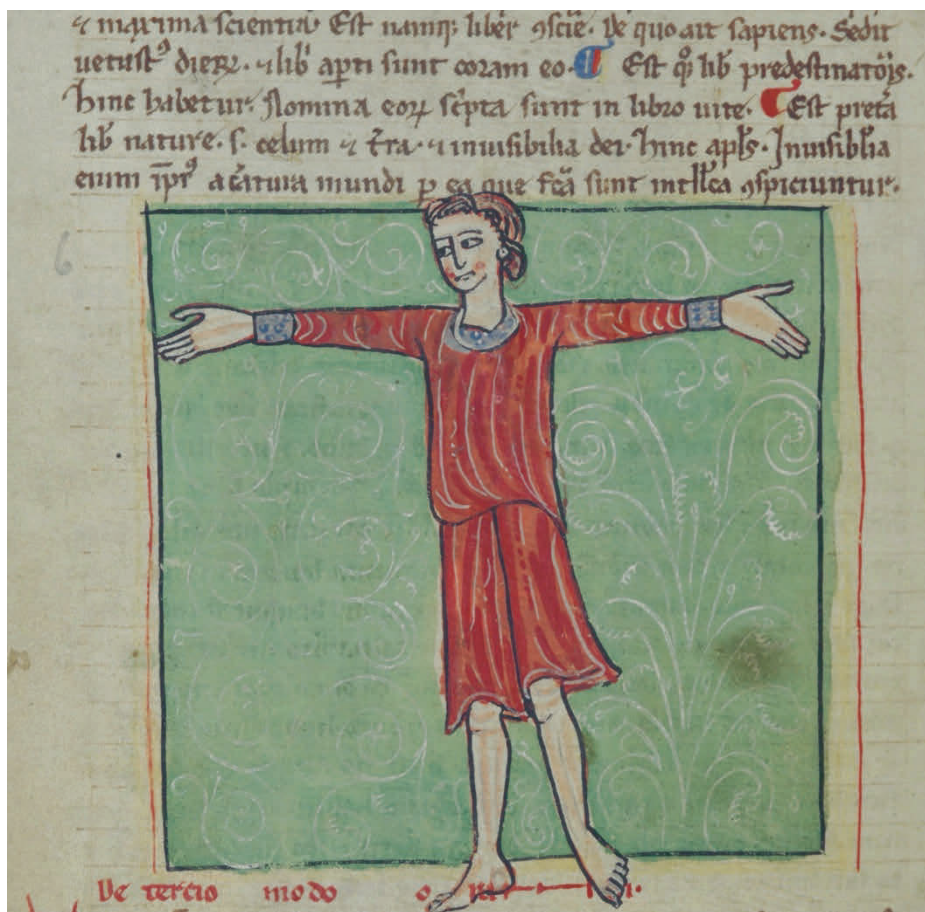 ⁊ maxima scientia. Est namq; liber ɔscīe. De quo ait sapiens. Sedit
uetustꝰ dierꝝ. ⁊ libͥ aꝑti sunt coram eo. ¶ Est qͦꝫ lib̄ predestinatōis.
hinc habetur. Nomina eorꝝ sc̄pta sunt in libro uite. ¶ Est pretā
lib̄ nature. s. celum ⁊ t̄ra. ⁊ inuisibilia dei. hinc apl̄s. Inuisiblīa
enim ip̄iꝰ a c̄atura mundi ꝑ ea que fc̄a sunt intll̄ca ɔspiciuntur.
De tercio modo